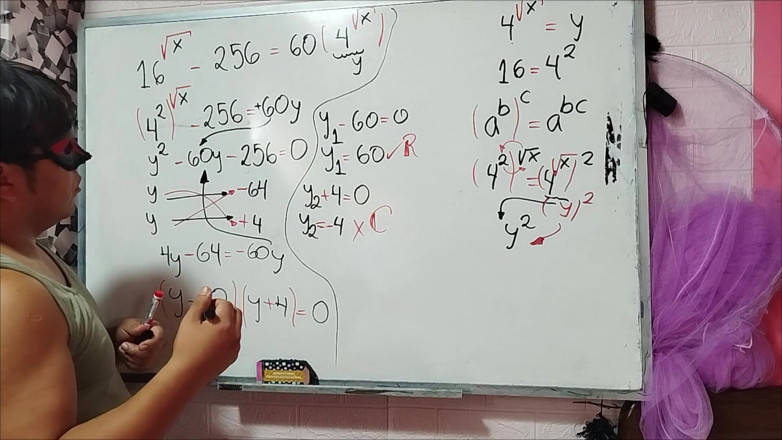 16^√x - 256 = 60(4^√x)
y
(4²)^√x - 256 = +60y
y² - 60y - 256 = 0
y -64
y +4
4y - 64 = -60y
(y - 0)(y + 4) = 0
y₁ - 60 = 0
y₁ = 60 ✓ R
y₂ + 4 = 0
y₂ = -4 x C
4^√x = y
16 = 4²
(a^b)^c = a^bc
(4²)^√x = (4^√x)²
(y)²
y²